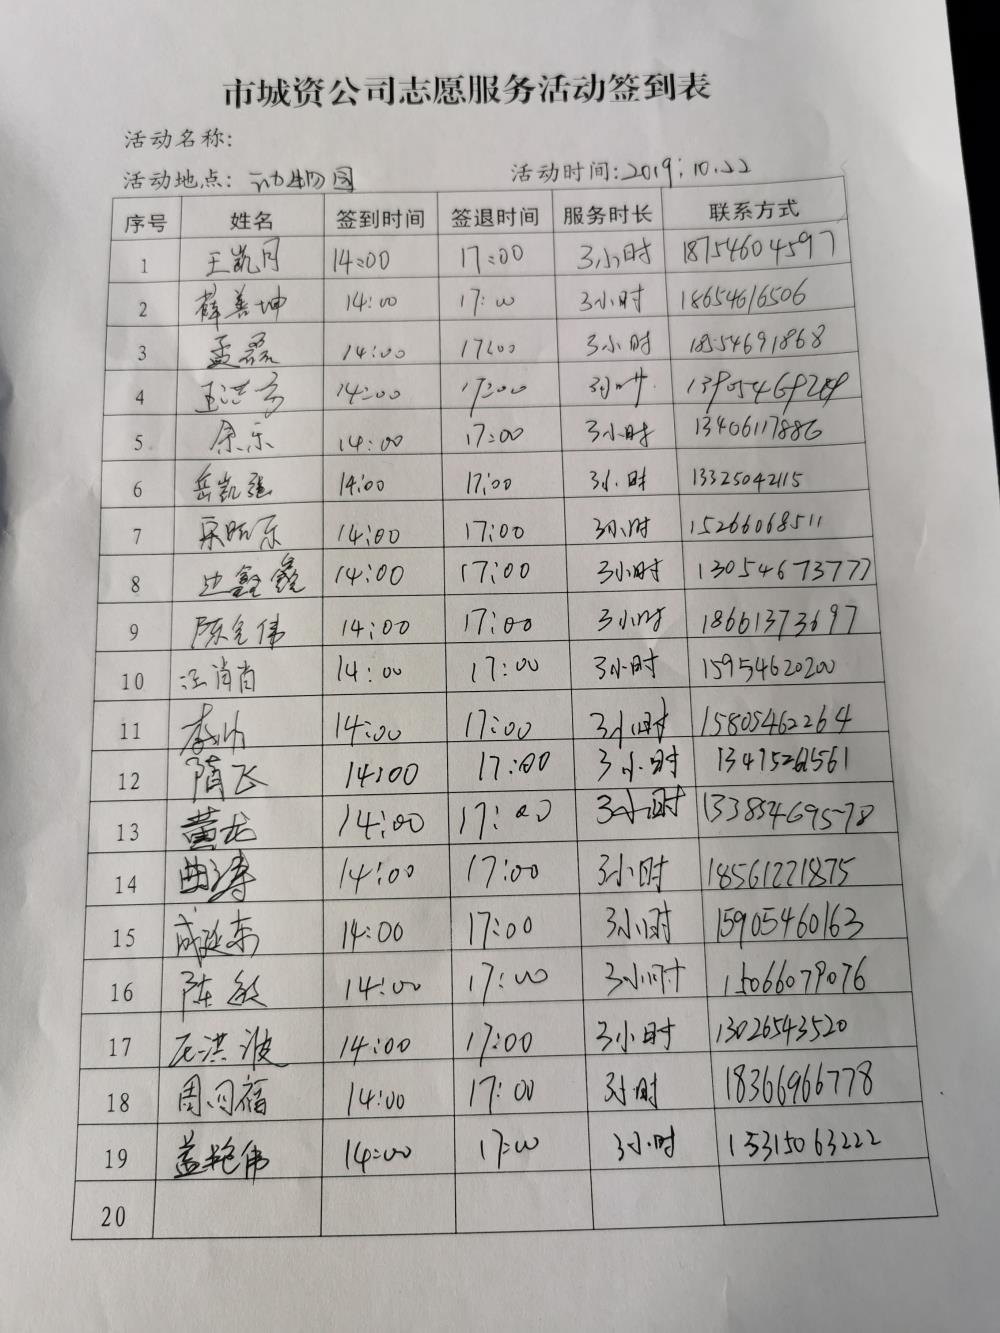 市城资公司志愿服务活动签到表
活动名称:
活动地点: 动物园 活动时间:2019:10.22
序号 姓名 签到时间 签退时间 服务时长 联系方式
1 王凯月 14:00 17:00 3小时 18754604597
2 薛善坤 14:00 17:00 3小时 18654616506
3 孟磊 14:00 17:00 3小时 18554691868
4 14:00 17:00 3小时
5 14:00 17:00 3小时 13406117886
6 岳凯强 14:00 17:00 3小时 13325042115
7 14:00 17:00 3小时 15266068511
8 边鑫鑫 14:00 17:00 3小时 13054673777
9 14:00 17:00 3小时 18661373697
10 汪肖肖 14:00 17:00 3小时 15954620200
11 李帅 14:00 17:00 3小时 15805462264
12 隋飞 14:00 17:00 3小时
13 黄龙 14:00 17:00 3小时
14 曲涛 14:00 17:00 3小时 18561221875
15 成延东 14:00 17:00 3小时 15905460163
16 陈敏 14:00 17:00 3小时 15066079076
17 14:00 17:00 3小时 13026543520
18 周同福 14:00 17:00 3小时 18366966778
19 盖艳伟 14:00 17:00 3小时 15315063222
20